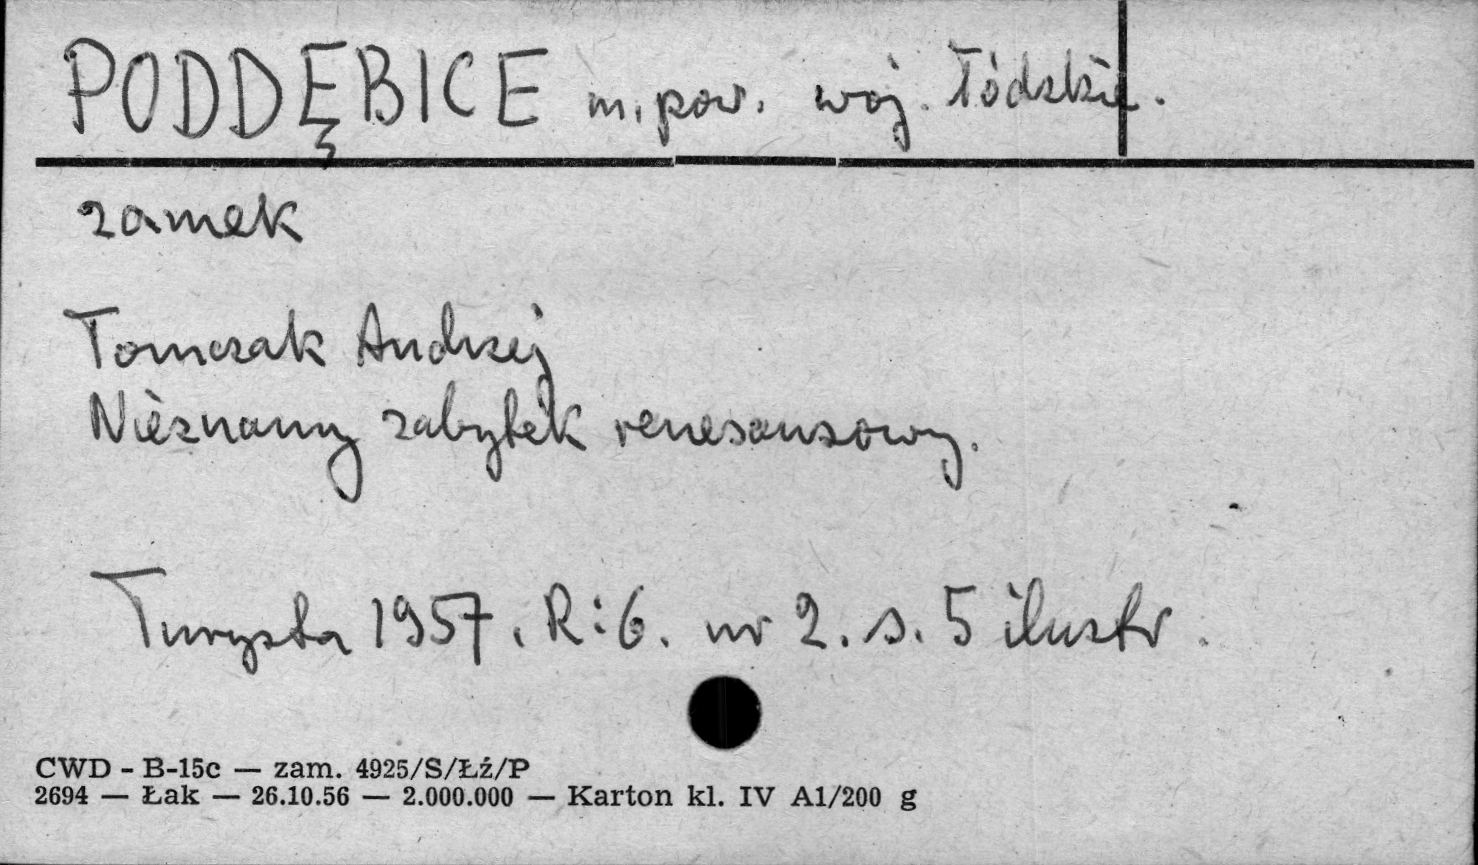 PODDĘBICE m. pow. woj. Łódzkie.
zamek
Tomczak Andrzej
Nieznany zabytek renesansowy.
Turysta 1957. R: 6. nr 2. s. 5 ilustr.
CWD - B-15c — zam. 4925/S/Łź/P
2694 — Łak — 26.10.56 — 2.000.000 — Karton kl. IV A1/200 g